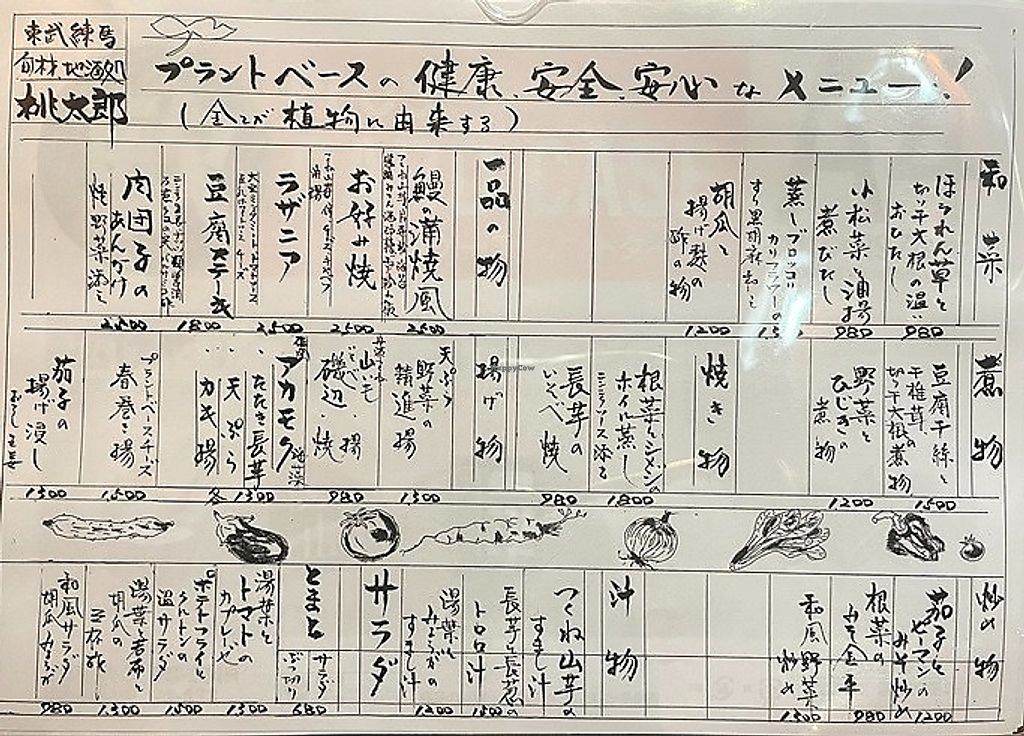 東武練馬
旬材、地酒処
桃太郎
プラントベースの健康、安全、安心なメニュー!
(全てが植物に由来する)
和菜
ほうれん草と
切り干大根の温い
おひたし
980
小松菜と油揚
煮びたし
980
蒸しブロッコリ
カリフラワーの
すり黒胡麻和え
胡瓜と
揚げ麸の
酢の物
1200
一品の物
鰻の蒲焼風
2500
お好み焼
2500
ラザニア
2,500
豆腐ステーキ
1800
肉団子の
あんかけ
焼野菜添え
2,500
煮物
豆腐干絲と
干椎茸の
切り干大根の煮物
1500
野菜と
ひじきの
煮物
1200
焼き物
根菜とシメジの
ホイル蒸し
1,800
長芋の
いそべ焼
980
揚げ物
天ぷら
野菜の
精進揚
1,300
山芋
磯辺揚
焼
980
アカモク
たたき長芋
天ぷら
カキ揚
各1300
プラントベースチーズ
春巻き揚
1,500
茄子の
揚げ浸し
おろし生姜
1300
炒め物
茄子と
ピーマンの
みそ炒め
1200
根菜の
みそ金平
980
和風野菜
炒め
1500
汁物
つくね山芋の
すまし汁
長芋と長葱の
トロロ汁
1500
湯葉と
みょうがの
すまし汁
1200
サラダ
とまと
サラダ
ぶつ切り
680
湯葉と
トマトの
カプレーゼ
1300
ポテトフライと
クルトンの
温サラダ
1500
湯葉と若布と
胡瓜の
三杯酢
1,300
和風サラダ
胡瓜みょうが
980
HappyCow